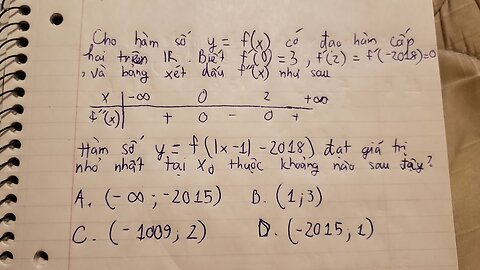 Cho hàm số y = f(x) có đạo hàm cấp
hai trên IR. Biết f'(0) = 3, f'(2) = f'(-2018)=0
, và bảng xét dấu f''(x) như sau
x -∞ 0 2 +∞
f''(x) + 0 - 0 +
Hàm số y = f(|x-1| - 2018) đạt giá trị
nhỏ nhất tại x₀ thuộc khoảng nào sau đây?
A. (-∞; -2015) B. (1;3)
C. (-1009; 2) D. (-2015; 1)